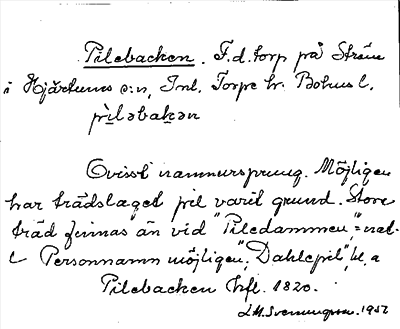 Pilebacken. F.d. torp på Ström
i Hjärtums s:n, Inl. Torpe hr. Bohusl.
pìləbakən
Ovisst namnursprung. Möjligen
har trädslaget pil varit grund. Stora
träd finnas än vid "Piledammen,"
Personnamn möjligen, "Dahlepil", bl.a
Pilebacken hfl. 1820.
1952